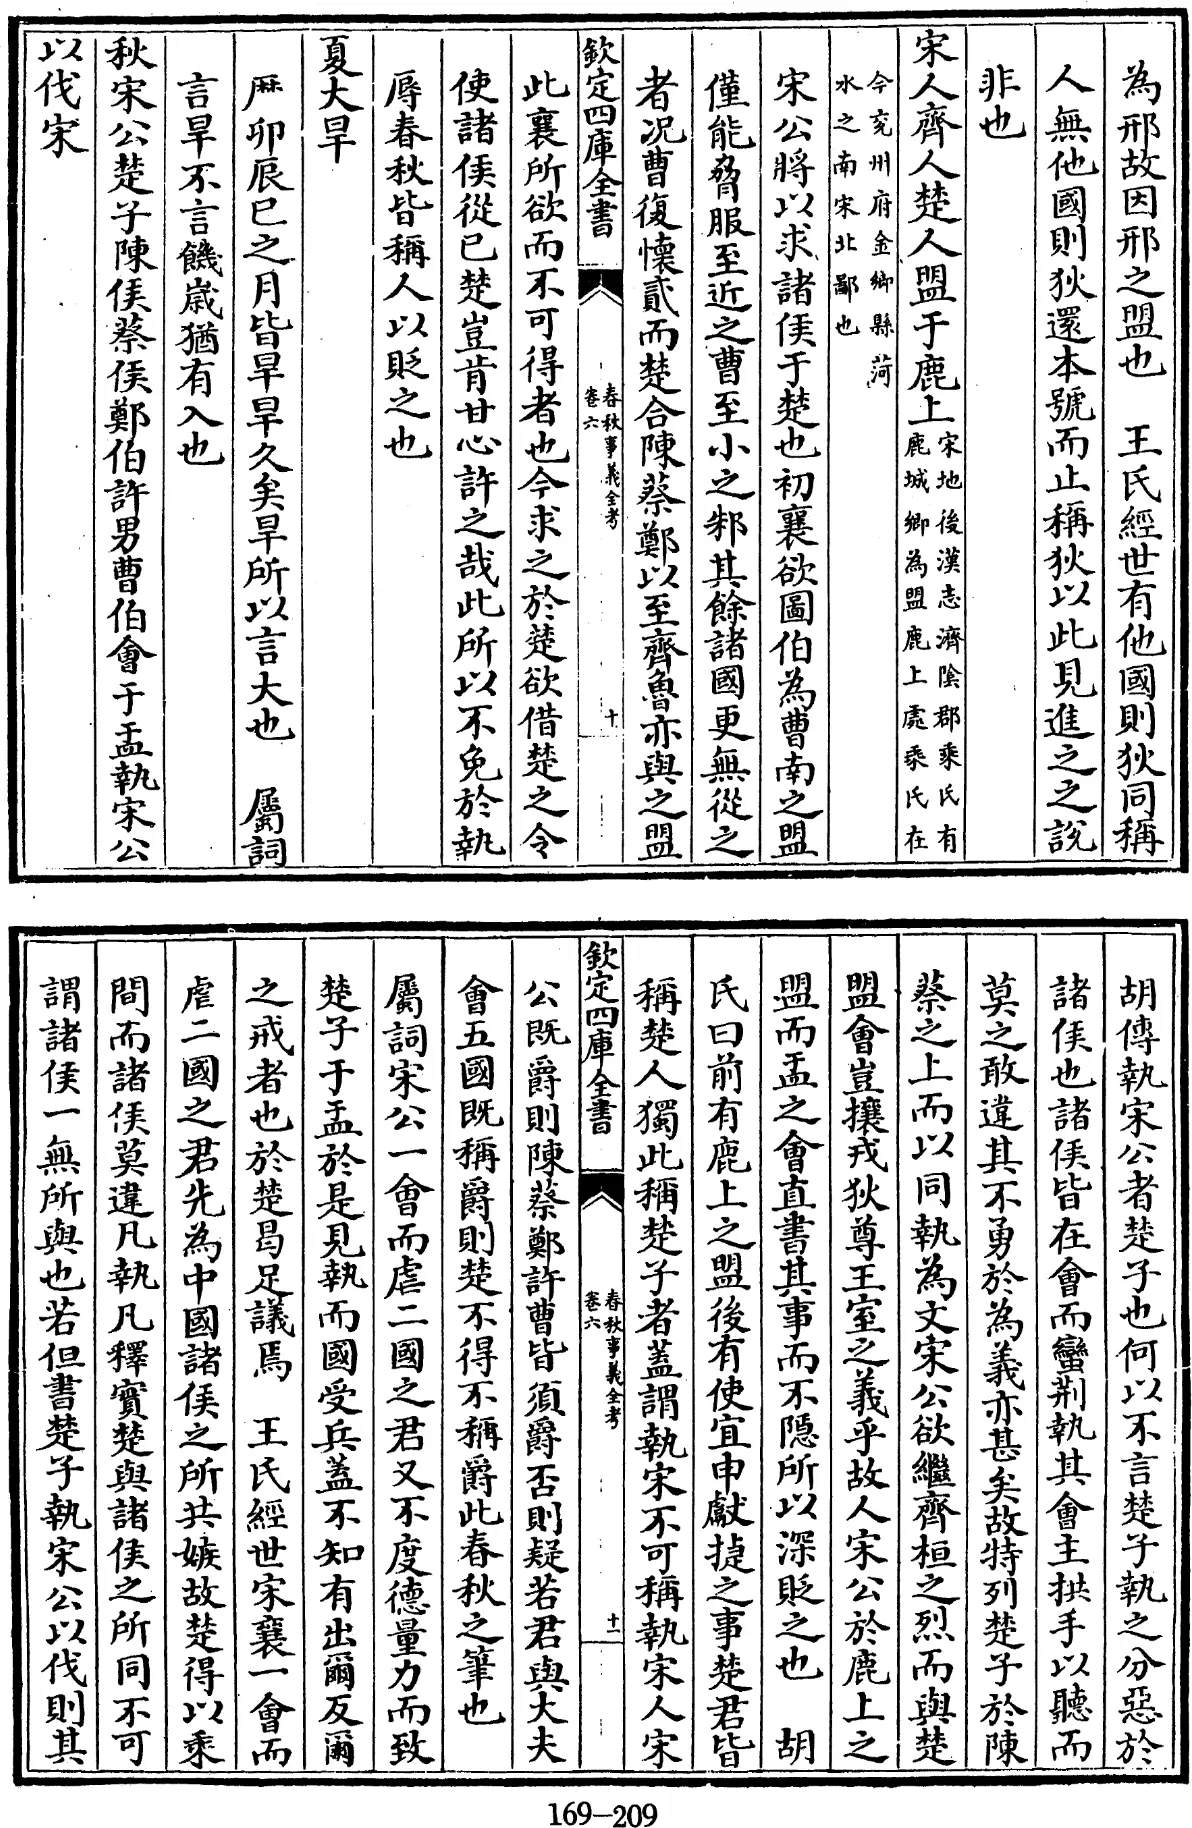 為邢故因邢之盟也　王氏經世有他國則狄同稱
人無他國則狄還本號而止稱狄以此見進之之説
非也
宋人齊人楚人盟于鹿上宋地後漢志濟隂郡乗氏有
鹿城鄉為盟鹿上處乗氏在
今兖州府金鄉縣菏
水之南宋北鄙也
宋公將以求諸侯于楚也初襄欲圖伯為曹南之盟
僅能脅服至近之曹至小之邾其餘諸國更無從之
者况曹復懷貳而楚合陳蔡鄭以至齊魯亦與之盟
欽定四庫全書
春秋事義全考
卷六
十
此襄所欲而不可得者也今求之於楚欲借楚之令
使諸侯從已楚豈肯甘心許之哉此所以不免於執
辱春秋皆稱人以貶之也
夏大旱
厯卯辰巳之月皆旱旱久矣旱所以言大也　屬詞
言旱不言饑嵗猶有入也
秋宋公楚子陳侯蔡侯鄭伯許男曹伯會于盂執宋公
以伐宋
胡傳執宋公者楚子也何以不言楚子執之分惡於
諸侯也諸侯皆在會而蠻荆執其會主拱手以聽而
莫之敢違其不勇於為義亦甚矣故特列楚子於陳
蔡之上而以同執為文宋公欲繼齊桓之烈而與楚
盟會豈攘戎狄尊王室之義乎故人宋公於鹿上之
盟而盂之會直書其事而不隱所以深貶之也　胡
氏曰前有鹿上之盟後有使宜申獻捷之事楚君皆
稱楚人獨此稱楚子者蓋謂執宋不可稱執宋人宋
欽定四庫全書
春秋事義全考
卷六
十一
公既爵則陳蔡鄭許曹皆須爵否則疑若君與大夫
會五國既稱爵則楚不得不稱爵此春秋之筆也
屬詞宋公一會而虐二國之君又不度德量力而致
楚子于盂於是見執而國受兵蓋不知有出爾反爾
之戒者也於楚曷足議焉　王氏經世宋襄一會而
虐二國之君先為中國諸侯之所共嫉故楚得以乘
間而諸侯莫違凡執凡釋實楚與諸侯之所同不可
謂諸侯一無所與也若但書楚子執宋公以伐則其
169-209